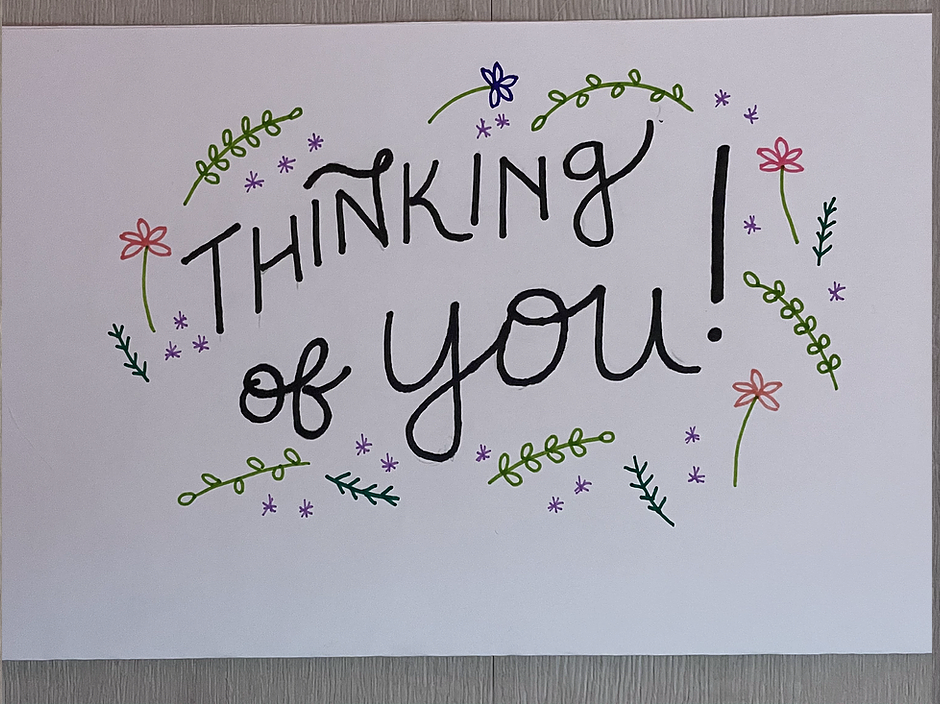 THINKING
of you!